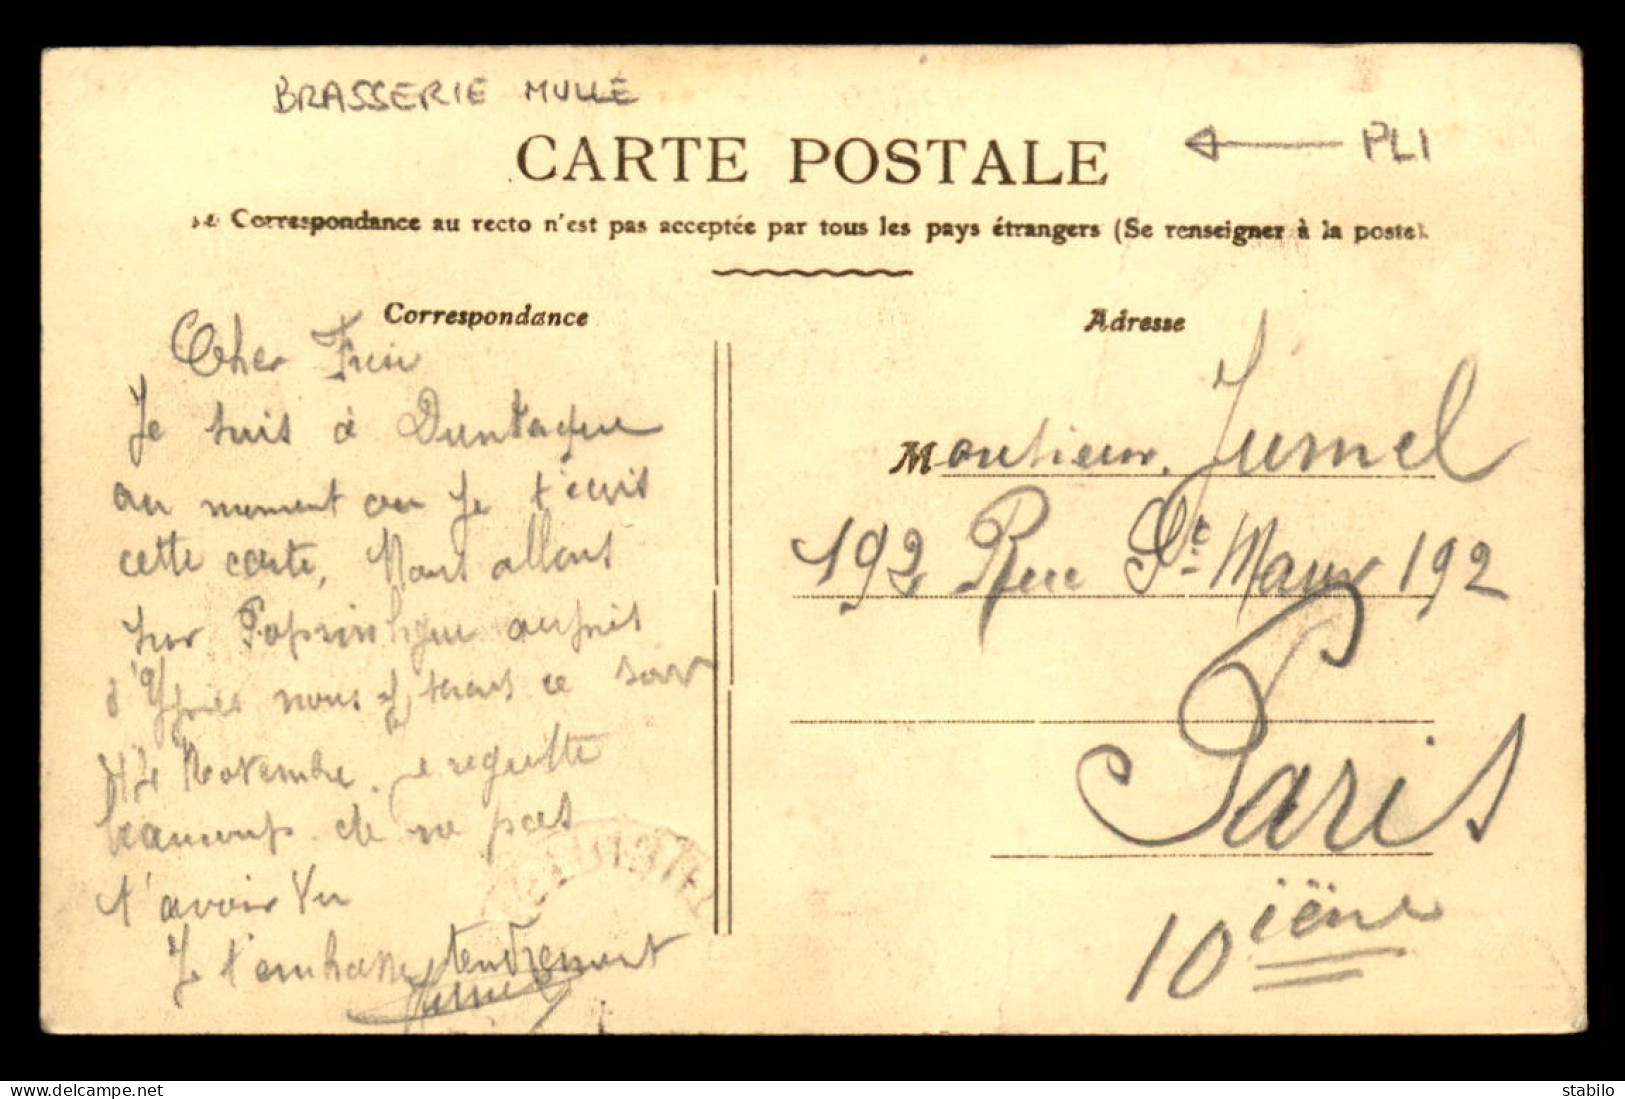 BRASSERIE MULLE
PLI
CARTE POSTALE
Correspondance au recto n'est pas acceptée par tous les pays étrangers (Se renseigner à la poste).
Correspondance
Cher
Je suis à
au moment ou Je t'écris
cette carte, Nous allons
sur Popringhue auprès
d'Yppres nous y serons ce soir
Novembre. Je regrette
beaucoup de ne pas
t'avoir Vu
Je t'embrasse tendrement
Adresse
Monsieur. Jumel
192 Rue St Maur 192
Paris
10 ième
stabilo